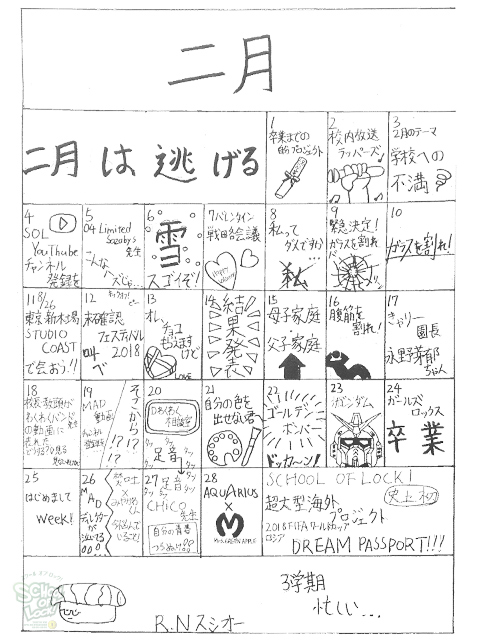 二月
二月は逃げる
1
卒業までの
プロジェクト
2
校内放送
ラッパーズ♪
3
2月のテーマ
学校への
不満
4
SOL
YouThube
チャンネル
登録を
5
04 Limited
Sazabys
先生
こんな
6
雪
スゴイぞ!
7 バレンタイン
戦略会議
Happy
8
私って
ダメですか…
私
9
緊急決定!
ガラスを割れ
10
ガラスを割れ!
11 8/26
東京新木場
STUDIO
COAST
で会おう!!
12
未確認
フェスティバル
2018
叫べ
13
オレ、
チョコ
もらえますけど
LOVE
14
結果発表
15
母子家庭
父子家庭
16
腹筋を
割れ!
17
キャリー
園長
永野芽郁
ちゃん
18
校長教頭が
わくわくバンド
の動画に
19
MAD
動画
そこから
!?
!?
20
わくわく
相談室
足音
21
自分の色を
出せない君
22
ゴールデン
ボンバー
ドッカ〜ン!
23
ガンダム
24
ガールズ
ロックス
卒業
25
はじめまして
Week!
26
MAD
クリエイターが
27
足音
CHiCO
先生
自分の青春
28
AQUARIUS
×
M
MRS.GREEN APPLE
SCHOOL OF LOCK!
史上初
超大型海外
プロジェクト
2018 FIFA ワールドカップ
ロシア
DREAM PASSPORT!!!
3学期
忙しい…
R.N スシオー